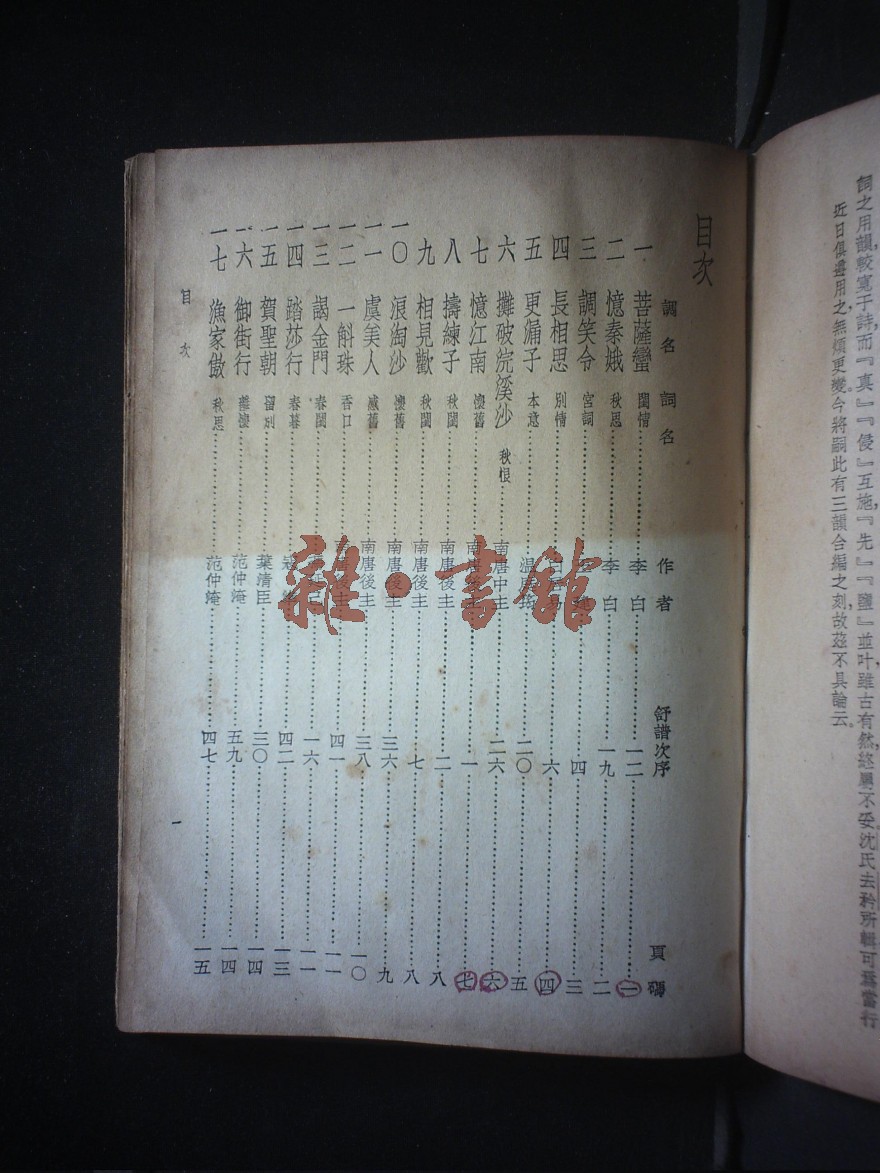 詞之用韻較寬于詩而『真』『侵』互施『先』『鹽』並叶雖古有然終異不妥沈氏去矜所輯可為當行
近日俱遵用之無煩更變今將嗣此有三韻合編之刻故茲不具論云
目次
調名 詞名 作者 舒譜次序 頁碼
一 菩薩蠻 閨情 李白 一二 一
二 憶秦娥 秋思 李白 一九 二
三 調笑令 宮詞 四 三
四 長相思 別情 六 四
五 更漏子 本意 溫 二〇 五
六 攤破浣溪沙 秋恨 南唐中主 二六 六
七 憶江南 懷舊 南唐後主 一 七
八 擣練子 秋閨 南唐後主 二 八
九 相見歡 秋閨 南唐後主 七 八
一〇 浪淘沙 懷舊 南唐後主 三六 九
一一 虞美人 感舊 南唐後主 三八 一〇
一二 一斛珠 香口 後主 四一 一一
一三 謁金門 春閨 一六 一一
一四 踏莎行 春暮 四二 一三
一五 賀聖朝 留別 葉清臣 三〇 一四
一六 御街行 離懷 范仲淹 五九 一四
一七 漁家傲 秋思 范仲淹 四七 一五
目次
一
雜·書館